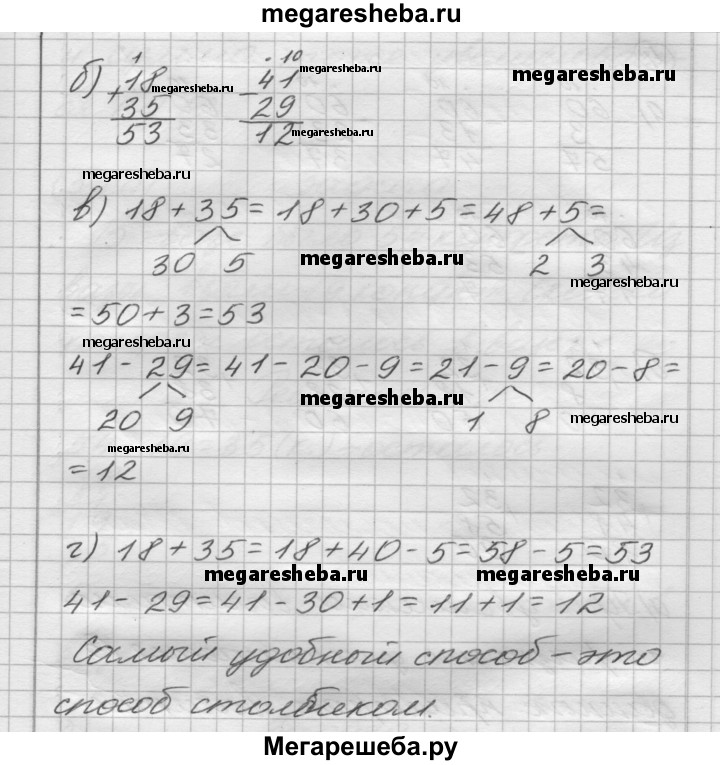 megaresheba.ru
1 . 10
б) 18 megaresheba.ru 41 megaresheba.ru megaresheba.ru
+ 35 - 29
53 12 megaresheba.ru
megaresheba.ru
в) 18 + 35 = 18 + 30 + 5 = 48 + 5 =
30 5 megaresheba.ru 2 3
megaresheba.ru
= 50 + 3 = 53
megaresheba.ru
41 - 29 = 41 - 20 - 9 = 21 - 9 = 20 - 8 =
megaresheba.ru
20 9 1 8 megaresheba.ru
megaresheba.ru
= 12
г) 18 + 35 = 18 + 40 - 5 = 58 - 5 = 53
megaresheba.ru megaresheba.ru
41 - 29 = 41 - 30 + 1 = 11 + 1 = 12
Самый удобный способ - это
способ столбиком.
Мегарешеба.ру